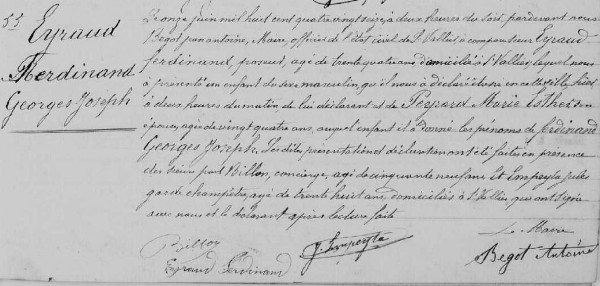 55
Eyraud
Ferdinand
Georges Joseph
Le onze juin mil huit cent quatre vingt seize, à deux heures du soir, pardevant nous
Begot Jean antoine, Maire, officier de l'état civil de St Vallier, a comparu Eyraud
ferdinand, agé de trente quatre ans, domicilié à St Vallier, lequel nous
a présenté un enfant du sexe masculin qu'il nous a déclaré être né en cette ville, hier,
à deux heures du matin, de lui déclarant et de Peyrard Marie Esther son
épouse, agée de vingt quatre ans, auquel enfant il a donné les prénoms de ferdinand
Georges Joseph. Les dites présentation et déclaration ont été faites en présence
des sieurs Billon, concierge, agé de cinquante neuf ans et Impeyta Jules
garde champêtre, agé de trente huit ans, domiciliés à St Vallier, qui ont signé
avec nous et le déclarant après lecture faite
Le Maire
Billon
J. Impeyta
Begot Antoine
Eyraud Ferdinand